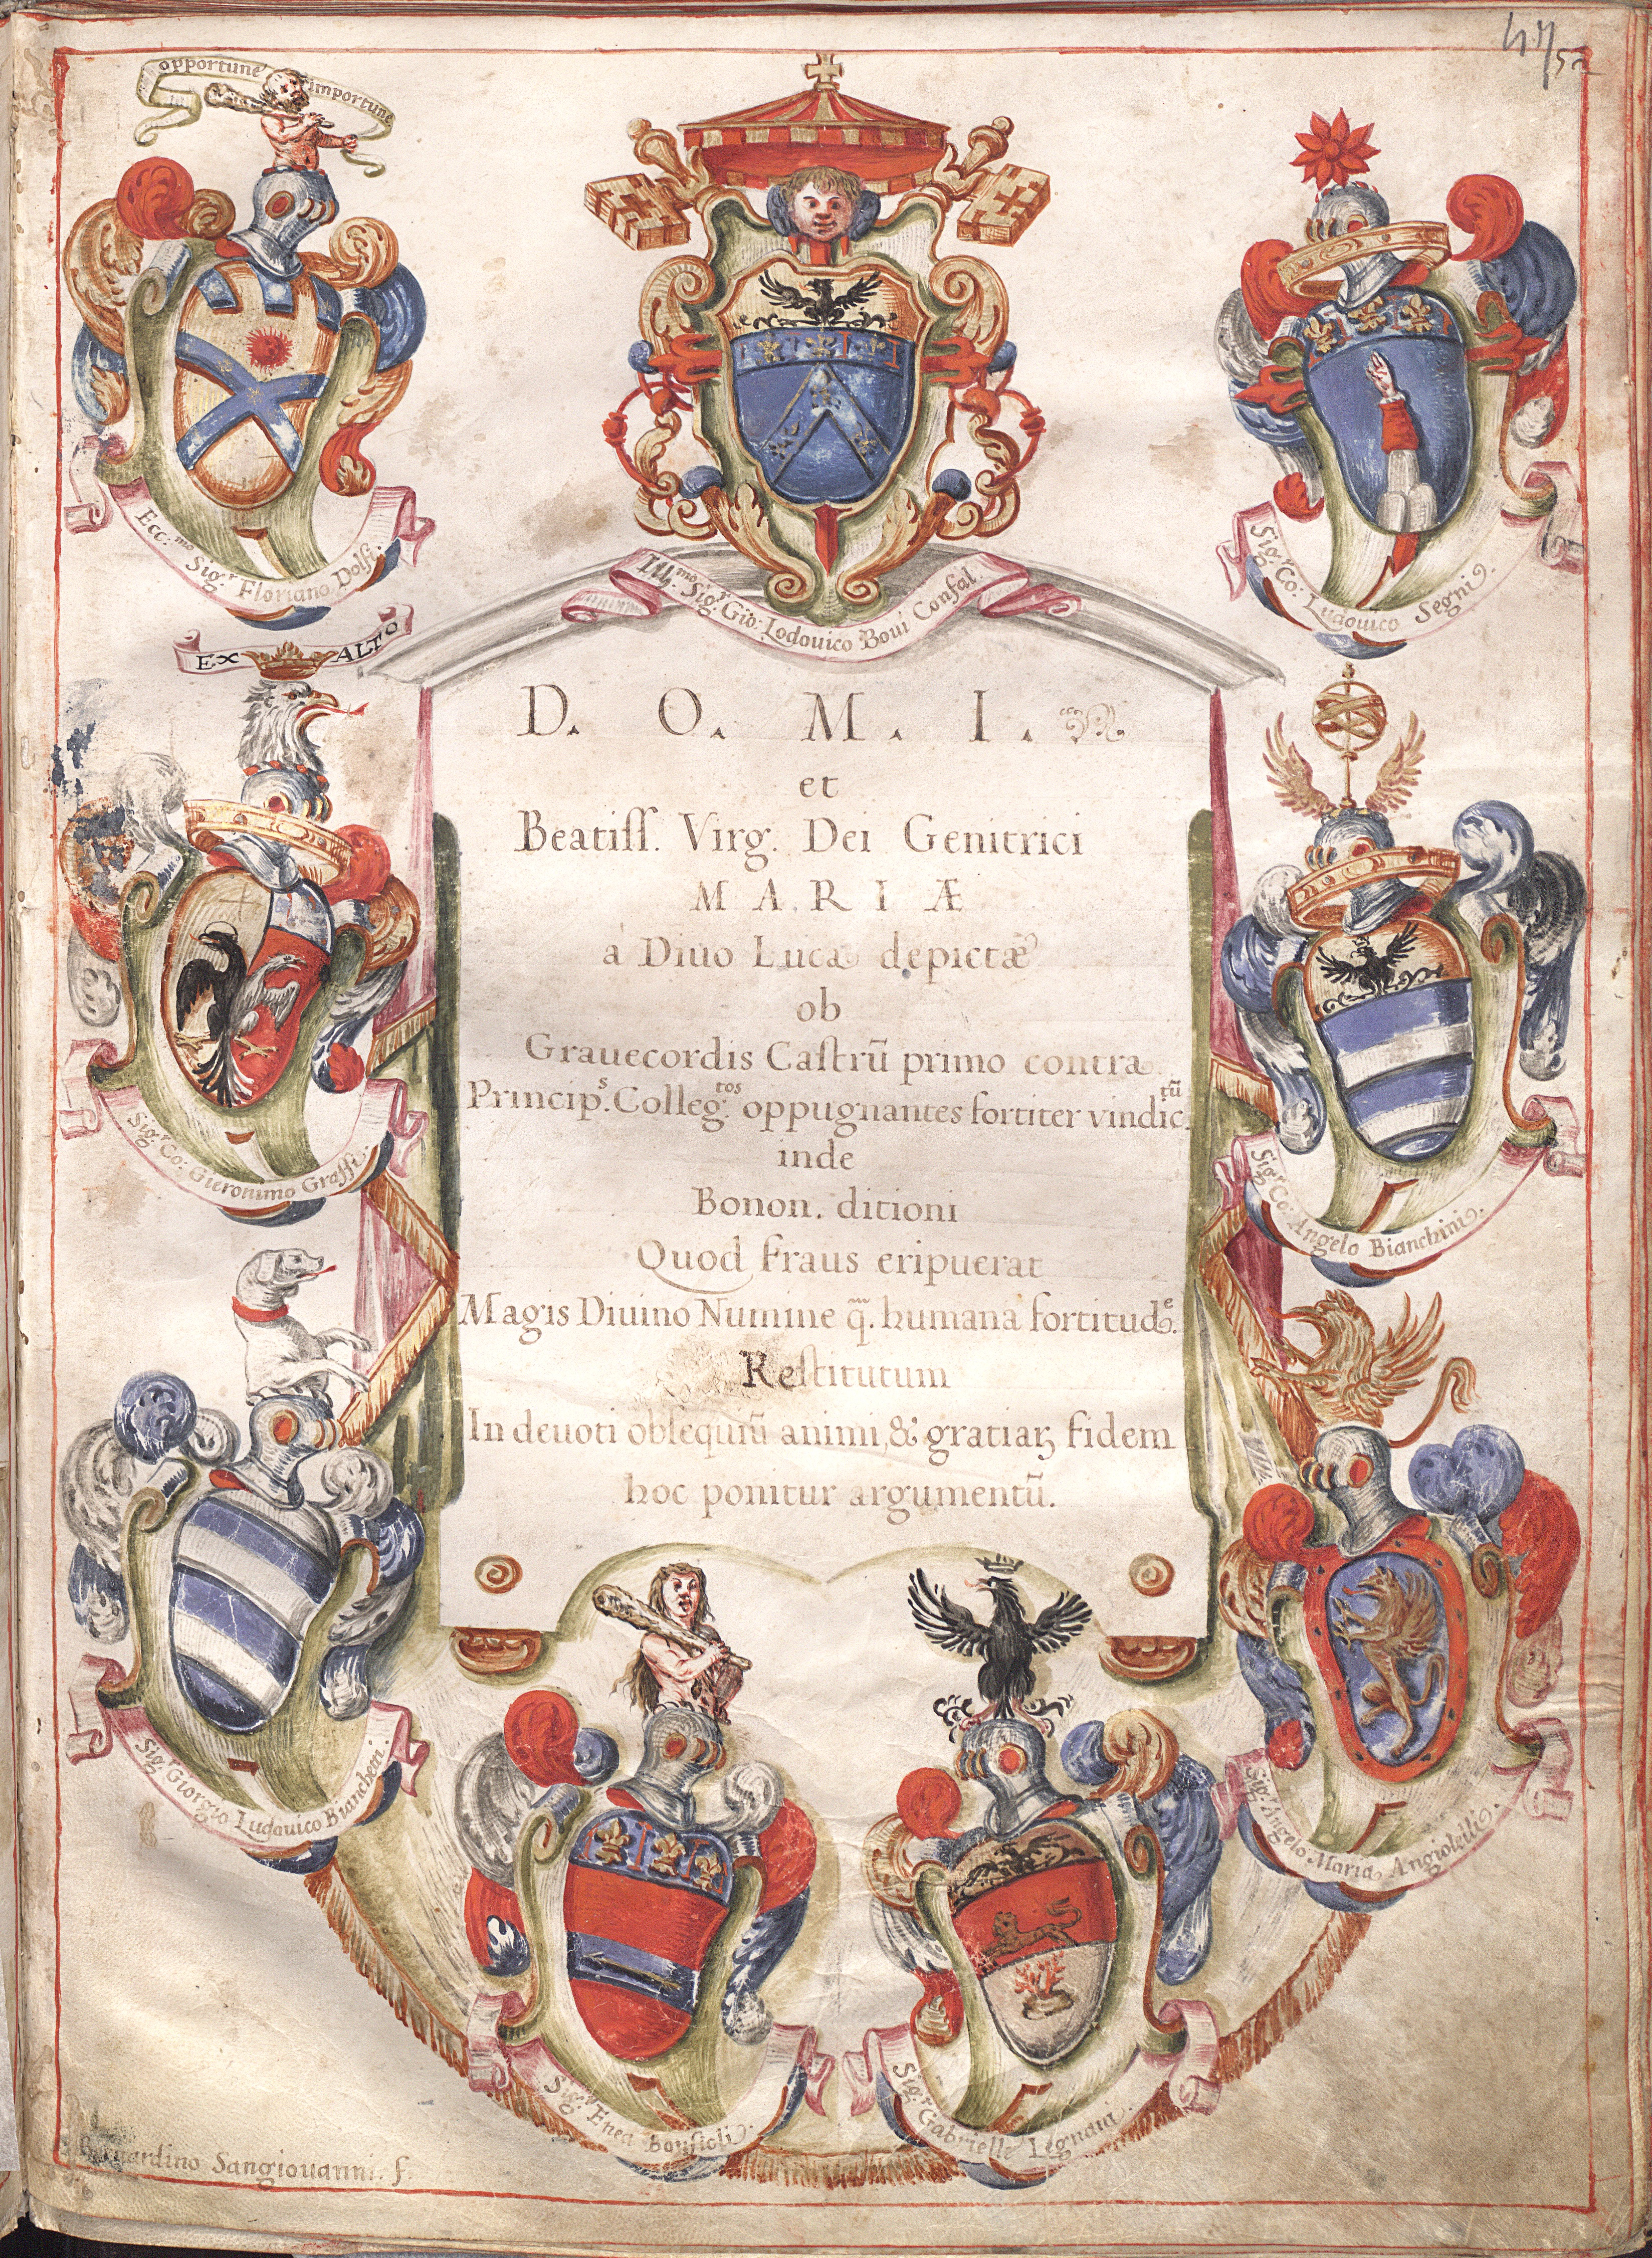 47/52
opportune importune
Ecc.mo Sig.r Floriano Dolfi.
Ill.mo Sig.r Gio: Lodouico Boui Confal.
Sig.r Co: Ludouico Segni.
EX ALTO
D. O. M. I.
et
Beatiss. Virg. Dei Genitrici
MARIÆ
à Diuo Luca depictæ
ob
Grauecordis Castrū primo contra
Princip.s Colleg.tos oppugnantes fortiter vindic.tū
inde
Bonon. ditioni
Quod fraus eripuerat
Magis Diuino Numine q. humana fortitud.e
Restitutum
In deuoti obsequiū animi, & gratiaꝝ fidem
hoc ponitur argumentū.
Sig.r Co: Gieronimo Grassi.
Sig.r Co: Angelo Bianchini.
Sig.r Giorgio Ludouico Bianchetti.
Sig.r Angelo Maria Angiolelli.
Sig.r Enea Bonfioli.
Sig.r Gabrielle Legnani.
Sangiouanni. f.